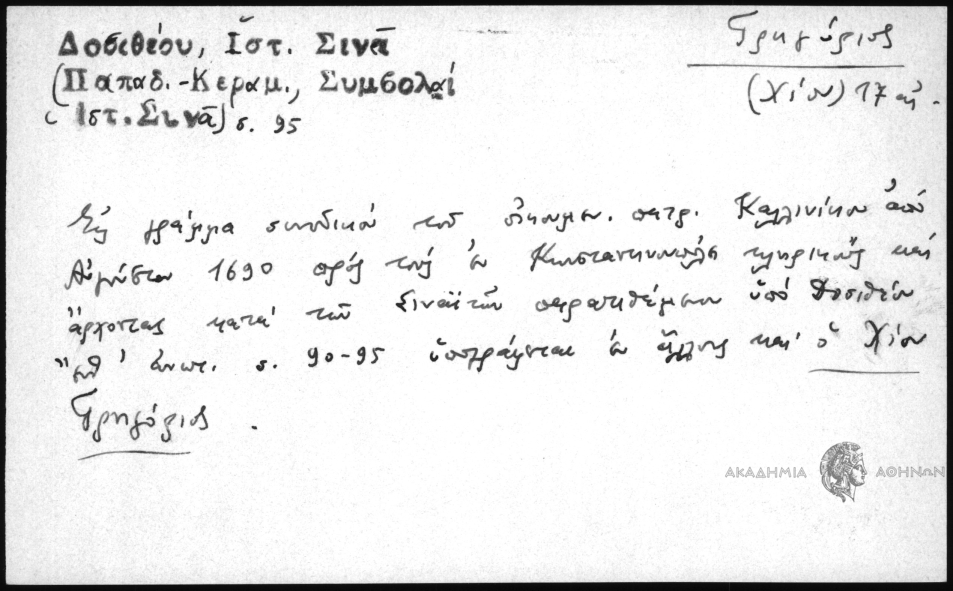 Δοσιθέου, Ἱστ. Σινᾶ
(Παπαδ.-Κεραμ., Συμβολαί
Ἱστ. Σινᾶ) σ. 95
Γρηγόριος
(Χίου) 17 αἰ.
Εἰς γράμμα συνοδικόν τοῦ οἰκουμ. πατρ. Καλλινίκου ἀπό
Αὐγούστου 1690 πρός τούς ἐν Κωνσταντινουπόλει κληρικούς καί
ἄρχοντας κατά τῶν Σιναϊτῶν παρατιθέμενον ὑπό Δοσιθέου
ἔνθ' ἀνωτ. σ. 90-95 ὑπογράφεται ἐν ἄλλοις καί ὁ Χίου
Γρηγόριος.
ΑΚΑΔΗΜΙΑ ΑΘΗΝΩΝ